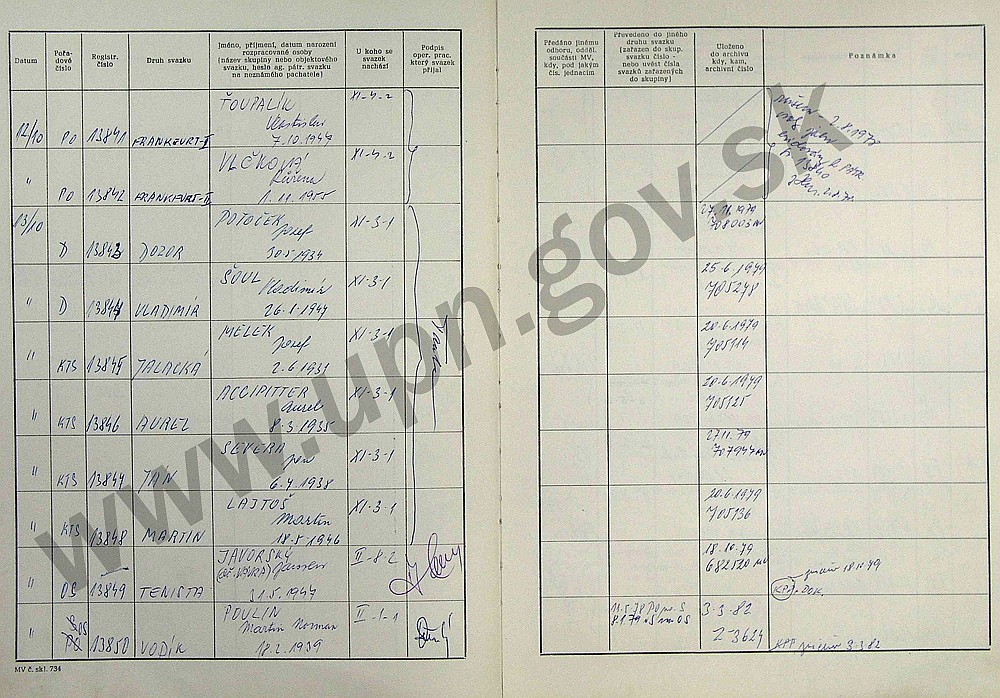 Datum
Pořa-
dové
číslo
Registr.
číslo
Druh svazku
Jméno, příjmení, datum narození
rozpracované osoby
(název skupiny nebo objektového
svazku, heslo ag. pátr. svazku
na neznámého pachatele)
U koho se
svazek
nachází
Podpis
oper. prac.
který svazek
přijal
Předáno jinému
odboru, odděl.
součásti MV,
kdy, pod jakým
čís. jednacím
Převedeno do jiného
druhu svazku
(zařazen do skup.
svazku číslo -
nebo uvést čísla
svazků zařazených
do skupiny)
Uloženo
do archivu
kdy, kam,
archivní číslo
Poznámka
12/10 PO 13841 FRANKFURT-II
ŤOUPALÍK
Vlastislav
7.10.1947
XI-4-2
" PO 13842 FRANKFURT-II
VLČKOVÁ
Růžena
1.11.1955
XI-4-2
13/10 D 13843 DOZOR
POTOČEK
Josef
30.5.1934
XI-3-1
27.11.1979
708003
" D 13844 VLADIMÍR
ŠOUL
Vladimír
26.1.1947
XI-3-1
25.6.1979
705248
" KTS 13845 TALACKÁ
MELEK
Josef
2.6.1931
XI-3-1
20.6.1979
705114
" KTS 13846 AUREL
ACCIPITTER
Aurel
8.3.1935
XI-3-1
20.6.1979
705125
" KTS 13847 JAN
SEVERA
Jan
6.4.1938
XI-3-1
27.11.79
707947
" KTS 13848 MARTIN
LAJTOŠ
Martin
18.5.1946
XI-3-1
20.6.1979
705136
" OS 13849 TENISTA
JAVORSKÝ
31.5.1947
II-8-2
18.10.79
682520
" OS 13850 VODÍK
POULIN
Martin Norman
18.2.1939
II-1-1
3-3-82
Z-3624
KPF 3-3-82
MV č. skl. 734
www.upn.gov.sk